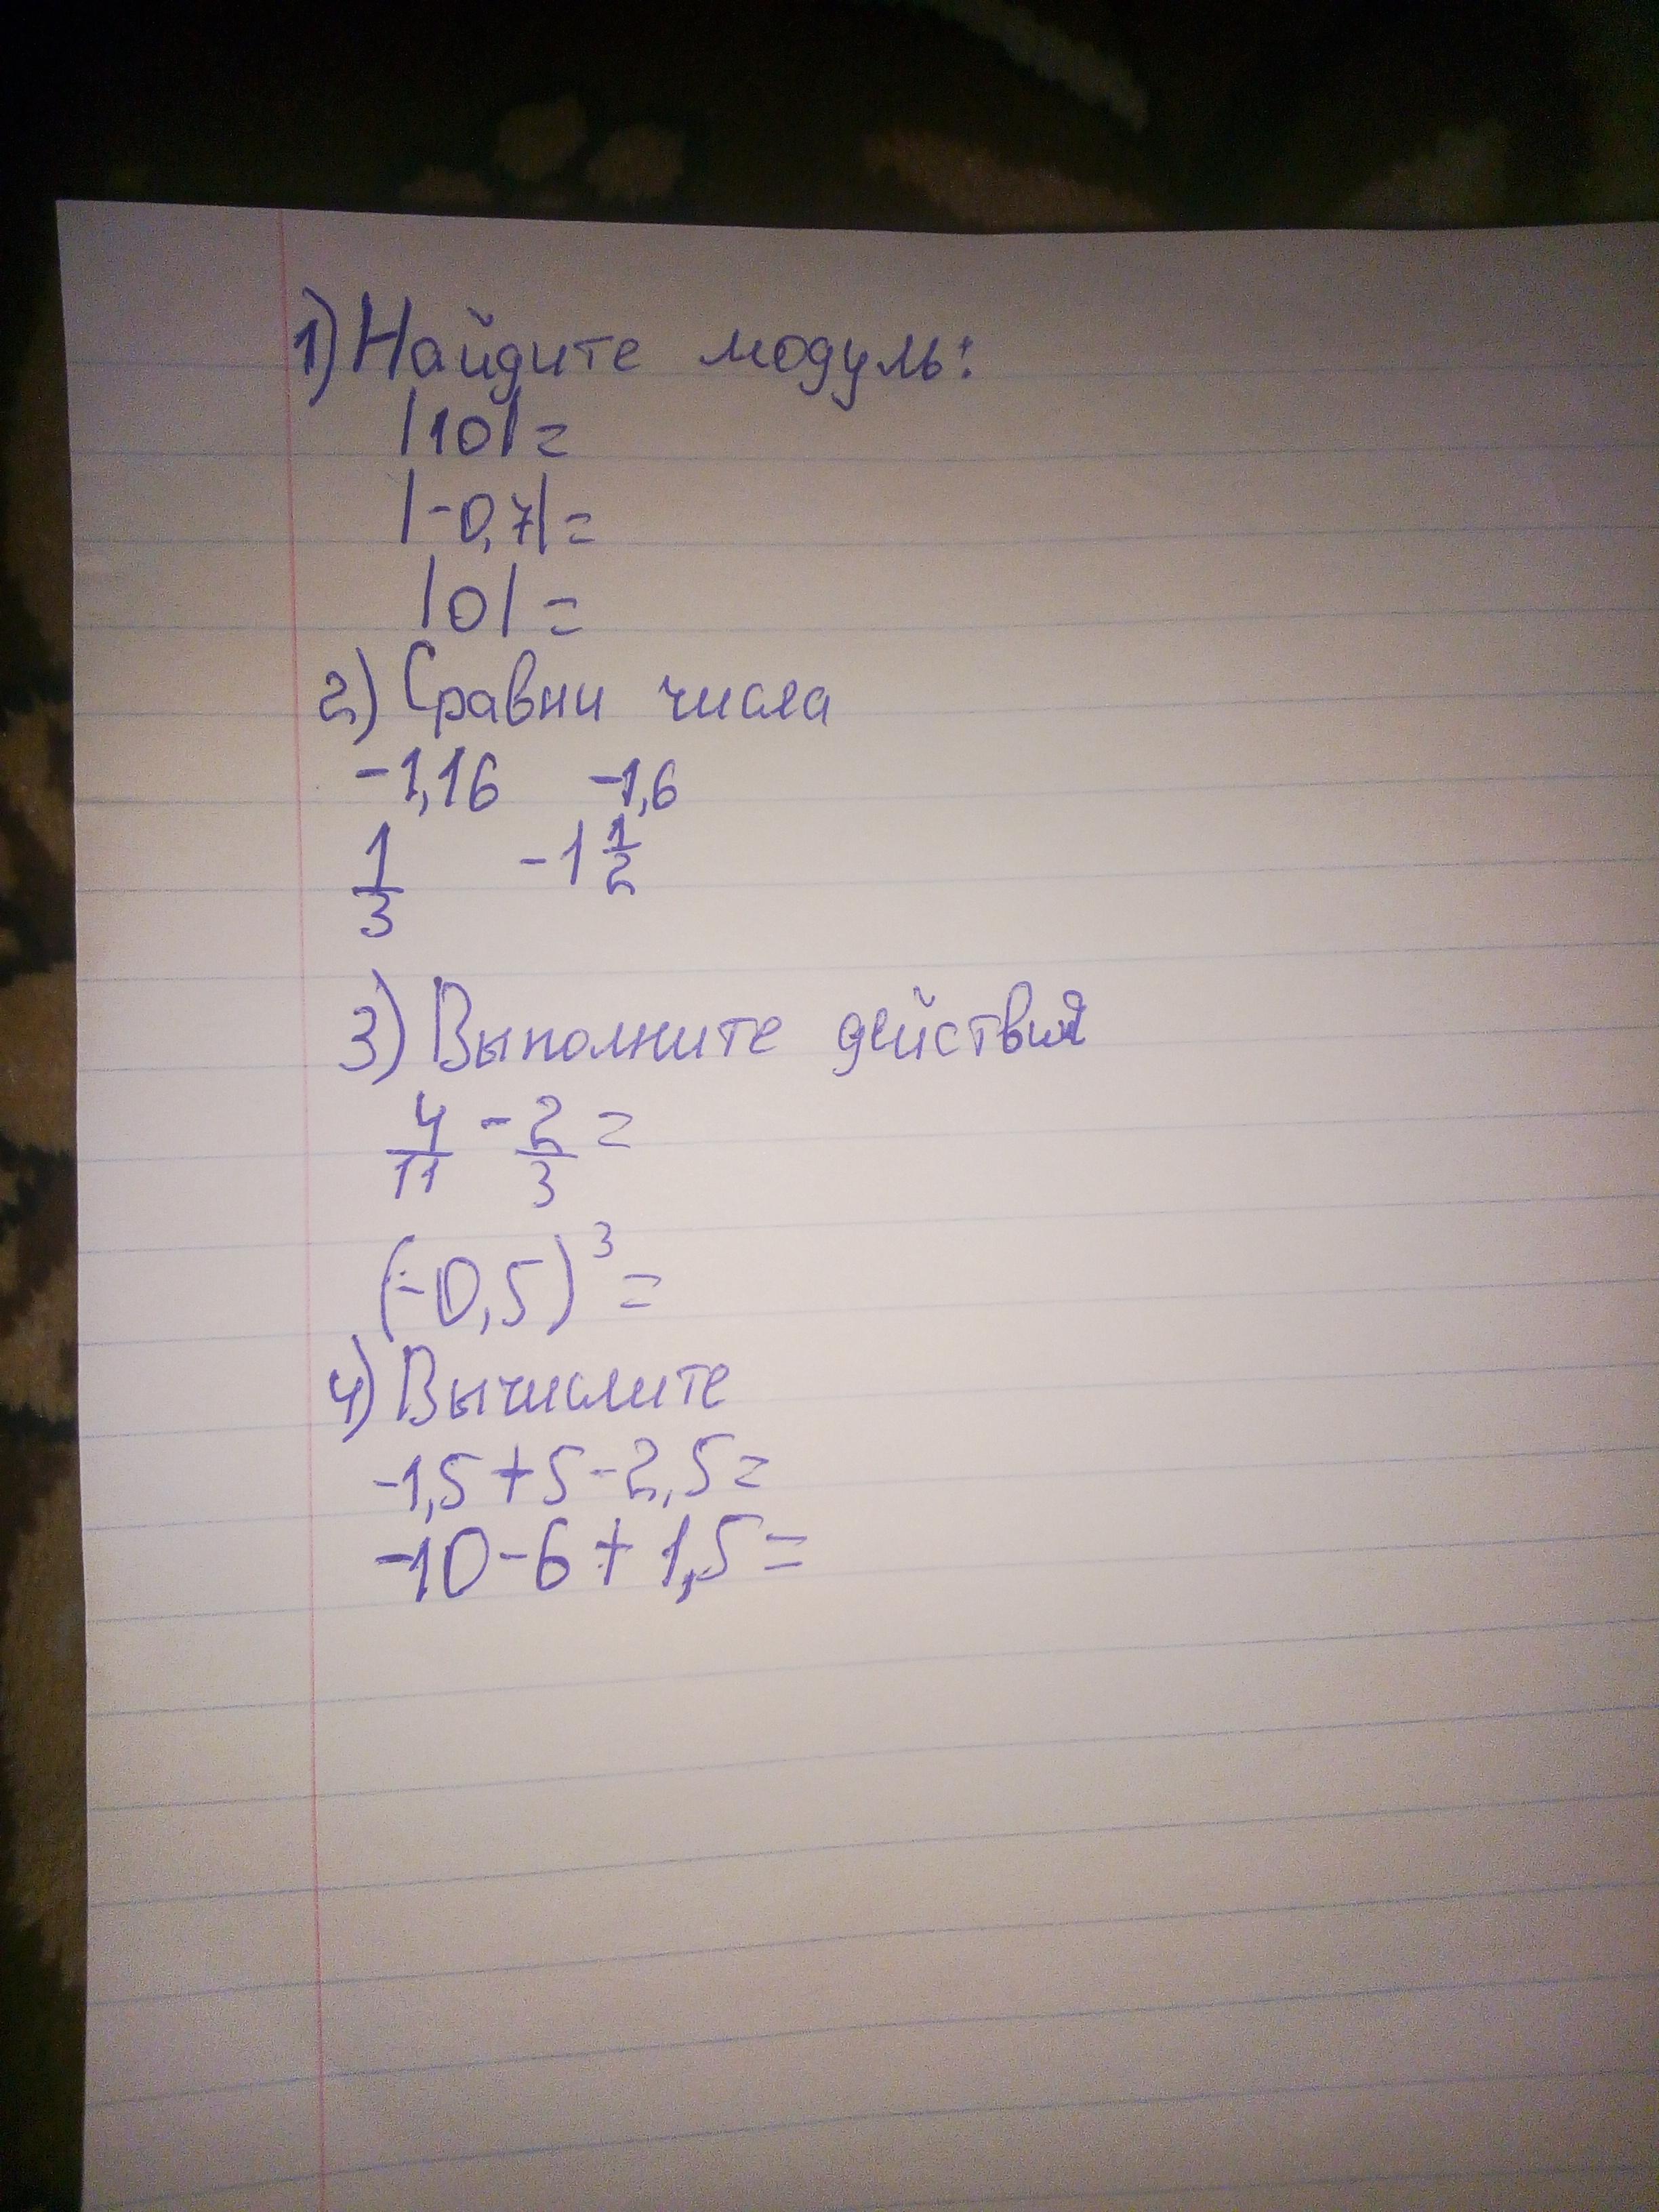 1) Найдите модуль:
|10| =
|-0,7| =
|0| =
2) Сравни числа
-1,16 -1,6
1/3 -1 1/2
3) Выполните действия
4/11 - 2/3 =
(-0,5)³ =
4) Вычислите
-1,5 + 5 - 2,5 =
-10 - 6 + 1,5 =